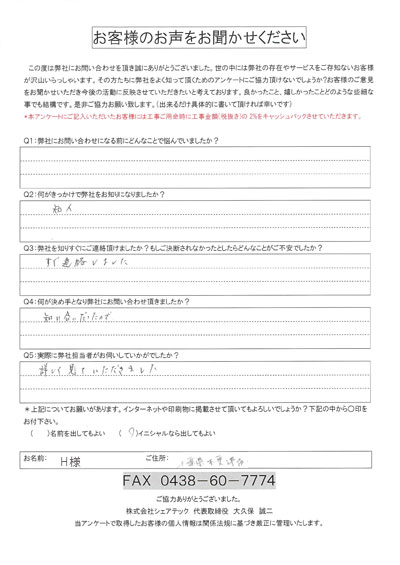 お客様のお声をお聞かせください
この度は弊社にお問い合わせを頂き誠にありがとうございました。世の中には弊社の存在やサービスをご存知ないお客様
が沢山いらっしゃいます。その方たちに弊社をよく知って頂くためのアンケートにご協力頂けないでしょうか?お客様のご意見
をお聞かせいただき今後の活動に反映させていただきたいと考えております。良かったこと、嬉しかったことどのような些細な
事でも結構です。是非ご協力お願い致します。(出来るだけ具体的に書いて頂ければ幸いです)
*本アンケートにご記入いただいたお客様には工事ご用命時に工事金額(税抜き)の2%をキャッシュバックさせていただきます。
Q1:弊社にお問い合わせになる前にどんなことで悩んでいましたか?
Q2:何がきっかけで弊社をお知りになりましたか?
知人
Q3:弊社を知りすぐにご連絡頂けましたか?もしご決断されなかったとしたらどんなことがご不安でしたか?
すぐ連絡しました
Q4:何が決め手となり弊社にお問い合わせ頂きましたか?
知り合いだったので
Q5:実際に弊社担当者がお伺いしていかがでしたか?
詳しく見ていただきました
*上記についてお願いがあります。インターネットや印刷物に掲載させて頂いてもよろしいでしょうか?下記の中から〇印を
お付下さい。
( )名前を出してもよい ( )イニシャルなら出してもよい
お名前: H様 ご住所:
FAX 0438-60-7774
ご協力ありがとうございました。
株式会社シェアテック 代表取締役 大久保 誠二
当アンケートで取得したお客様の個人情報は関係法規に基づき厳正に管理いたします。